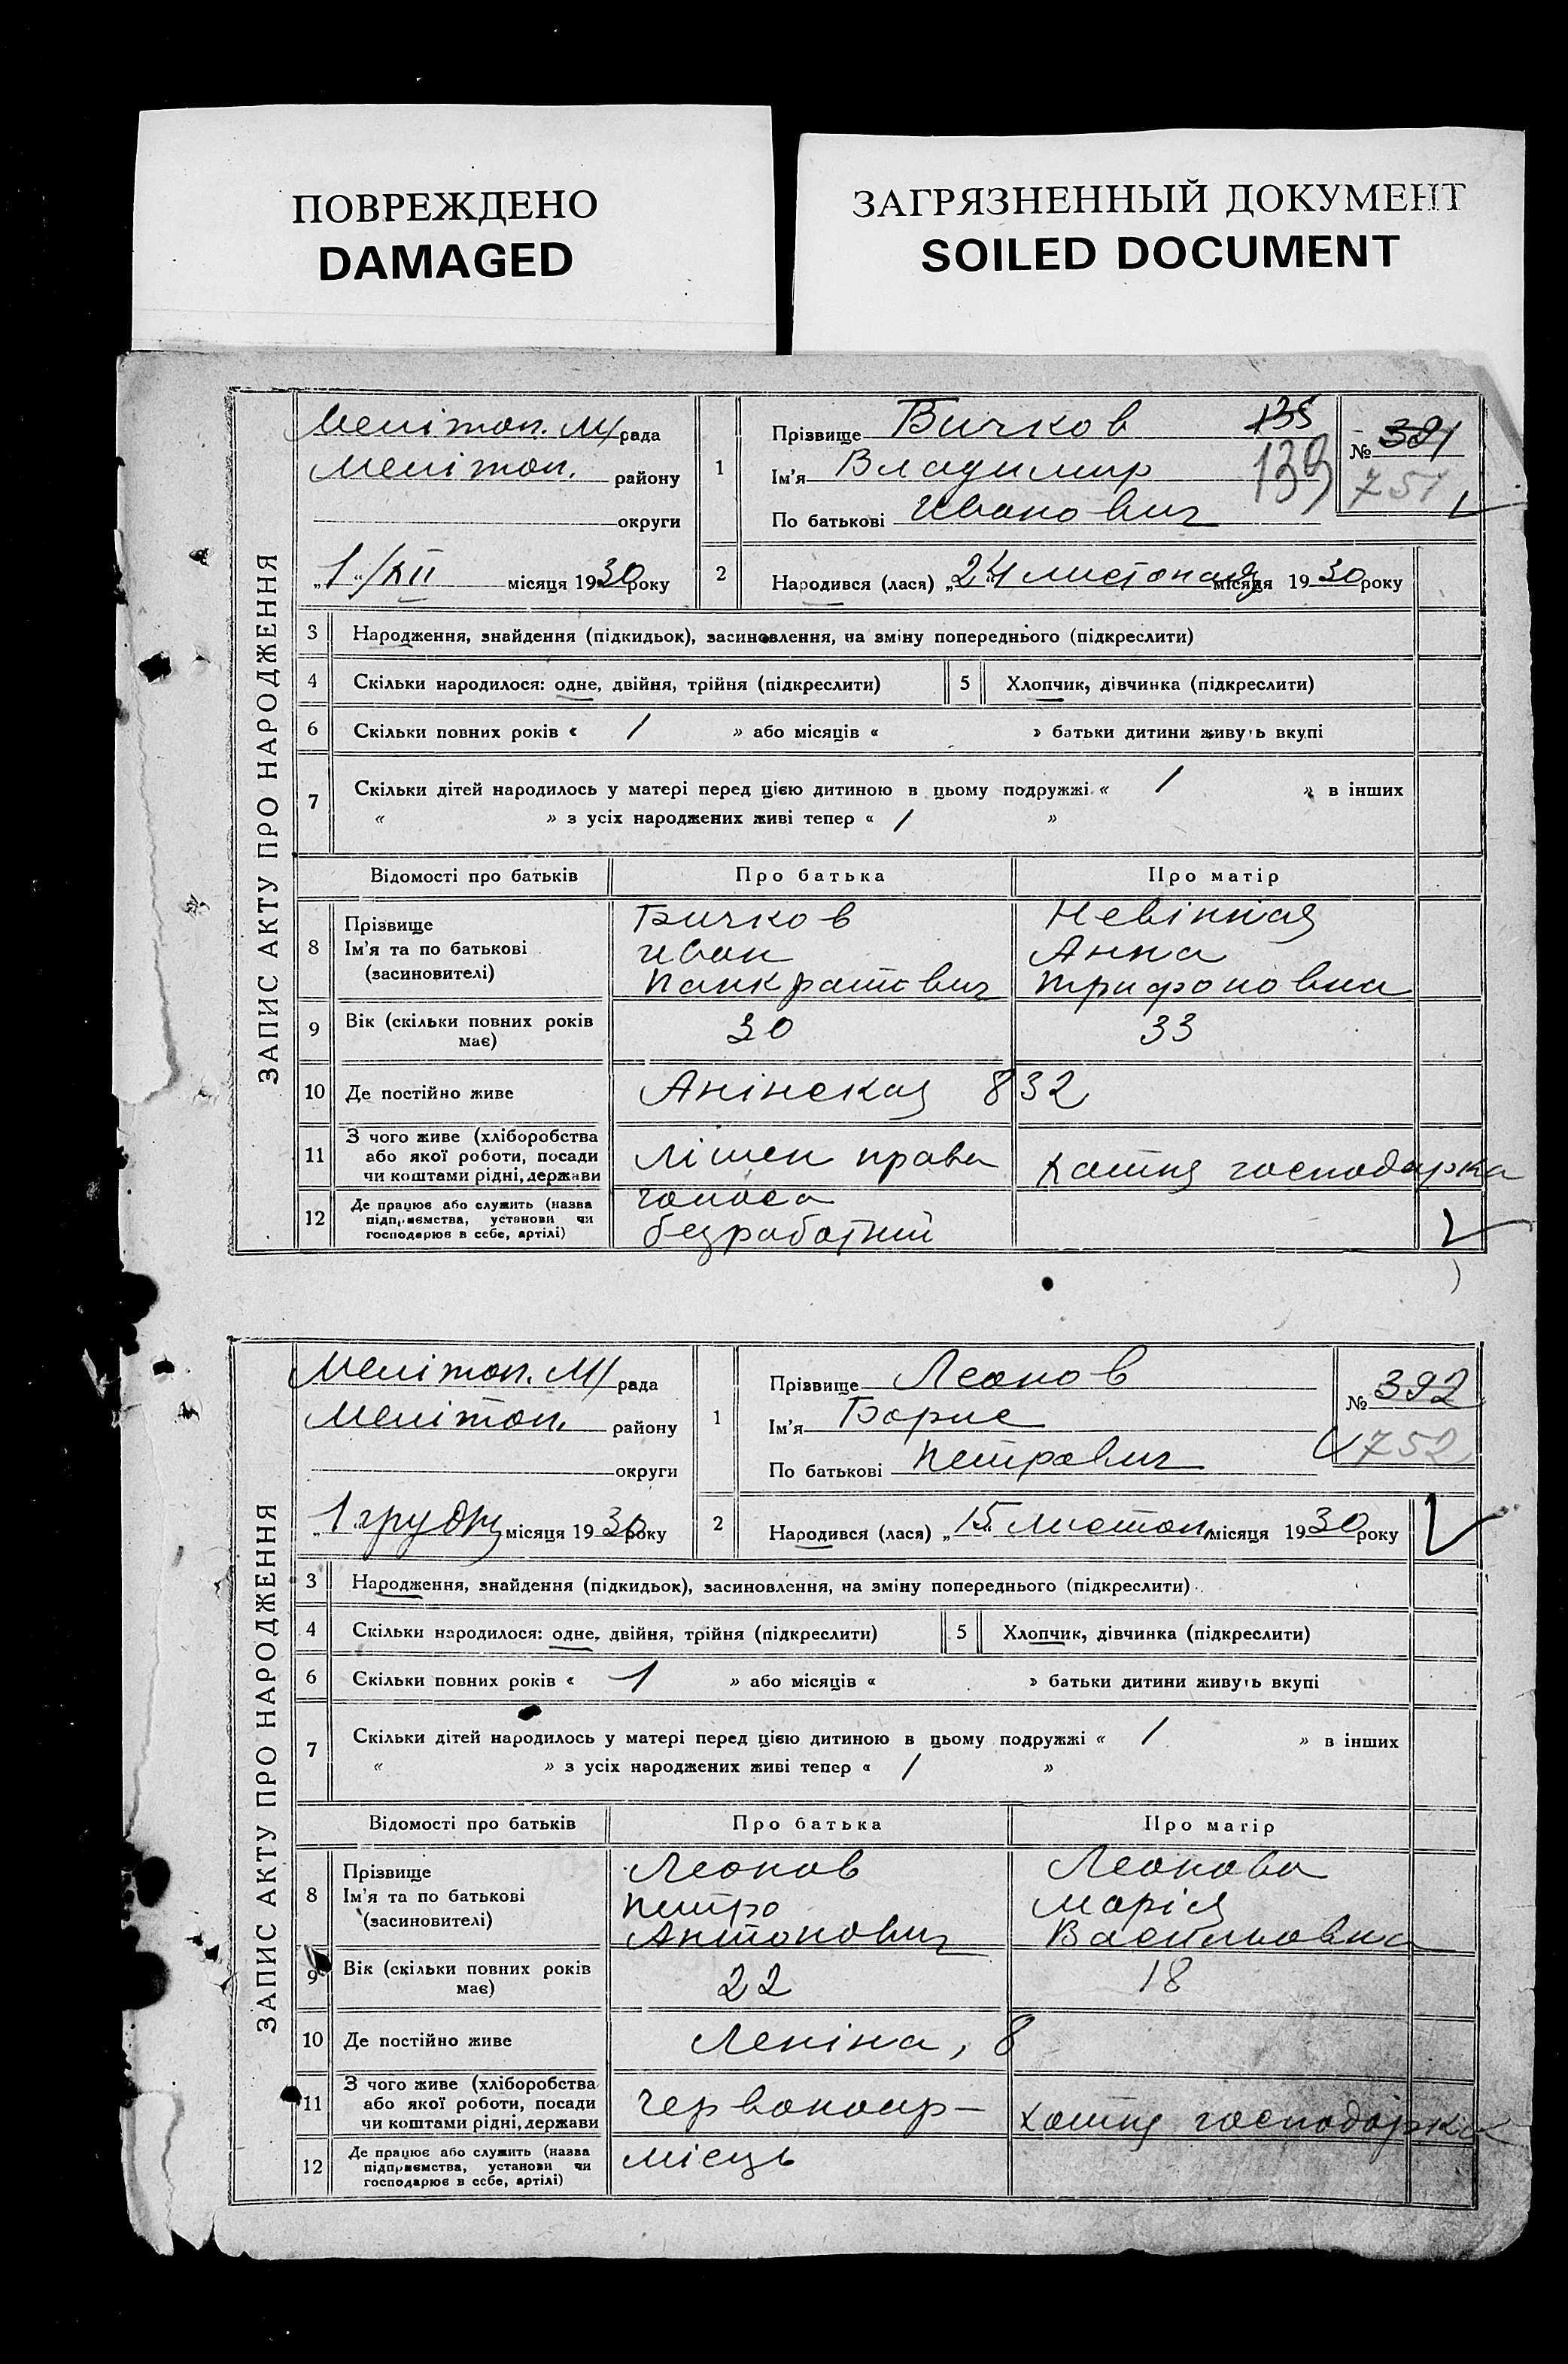 ПОВРЕЖДЕНО
DAMAGED
ЗАГРЯЗНЕННЫЙ ДОКУМЕНТ
SOILED DOCUMENT
ЗАПИС АКТУ ПРО НАРОДЖЕННЯ
Мелітоп. М/рада
Мелітоп. району
округи
„1“/XII місяця 1930 року
1
Прізвище Бичков 135
Ім'я Владимир 139
По батькові Иванович
№ 391
751
2
Народився (лася) „24 листопада місяця 1930 року
3 Народження, знайдення (підкидьок), засиновлення, на зміну попереднього (підкреслити)
4 Скільки народилося: одне, двійня, трійня (підкреслити) 5 Хлопчик, дівчинка (підкреслити)
6 Скільки повних років « 1 » або місяців « » батьки дитини живуть вкупі
7 Скільки дітей народилось у матері перед цією дитиною в цьому подружжі « 1 » в інших
« » з усіх народжених живі тепер « 1 »
Відомості про батьків Про батька Про матір
8 Прізвище Бичков Невінная
Ім'я та по батькові Иван Анна
(засиновителі) Панкратович Трифоновна
9 Вік (скільки повних років має) 30 33
10 Де постійно живе Анінская 832
11 З чого живе (хліборобства
або якої роботи, посади
чи коштами рідні, держави лішен права хатня господарка
12 Де працює або служить (назва
підприємства, установи чи
господарює в себе, артілі) голоса
безработний
ЗАПИС АКТУ ПРО НАРОДЖЕННЯ
Мелітоп. М/рада
Мелітоп. району
округи
„1“ грудня місяця 1930 року
1
Прізвище Леонов
Ім'я Борис
По батькові Петрович
№ 392
752
2
Народився (лася) „15“ листоп. місяця 1930 року
3 Народження, знайдення (підкидьок), засиновлення, на зміну попереднього (підкреслити)
4 Скільки народилося: одне, двійня, трійня (підкреслити) 5 Хлопчик, дівчинка (підкреслити)
6 Скільки повних років « 1 » або місяців « » батьки дитини живуть вкупі
7 Скільки дітей народилось у матері перед цією дитиною в цьому подружжі « 1 » в інших
« » з усіх народжених живі тепер « 1 »
Відомості про батьків Про батька Про матір
8 Прізвище Леонов Леонова
Ім'я та по батькові Петро Марія
(засиновителі) Антонович Васильовна
9 Вік (скільки повних років має) 22 18
10 Де постійно живе Леніна, 8
11 З чого живе (хліборобства
або якої роботи, посади
чи коштами рідні, держави червоноар- хатня господарка
12 Де працює або служить (назва
підприємства, установи чи
господарює в себе, артілі) місець